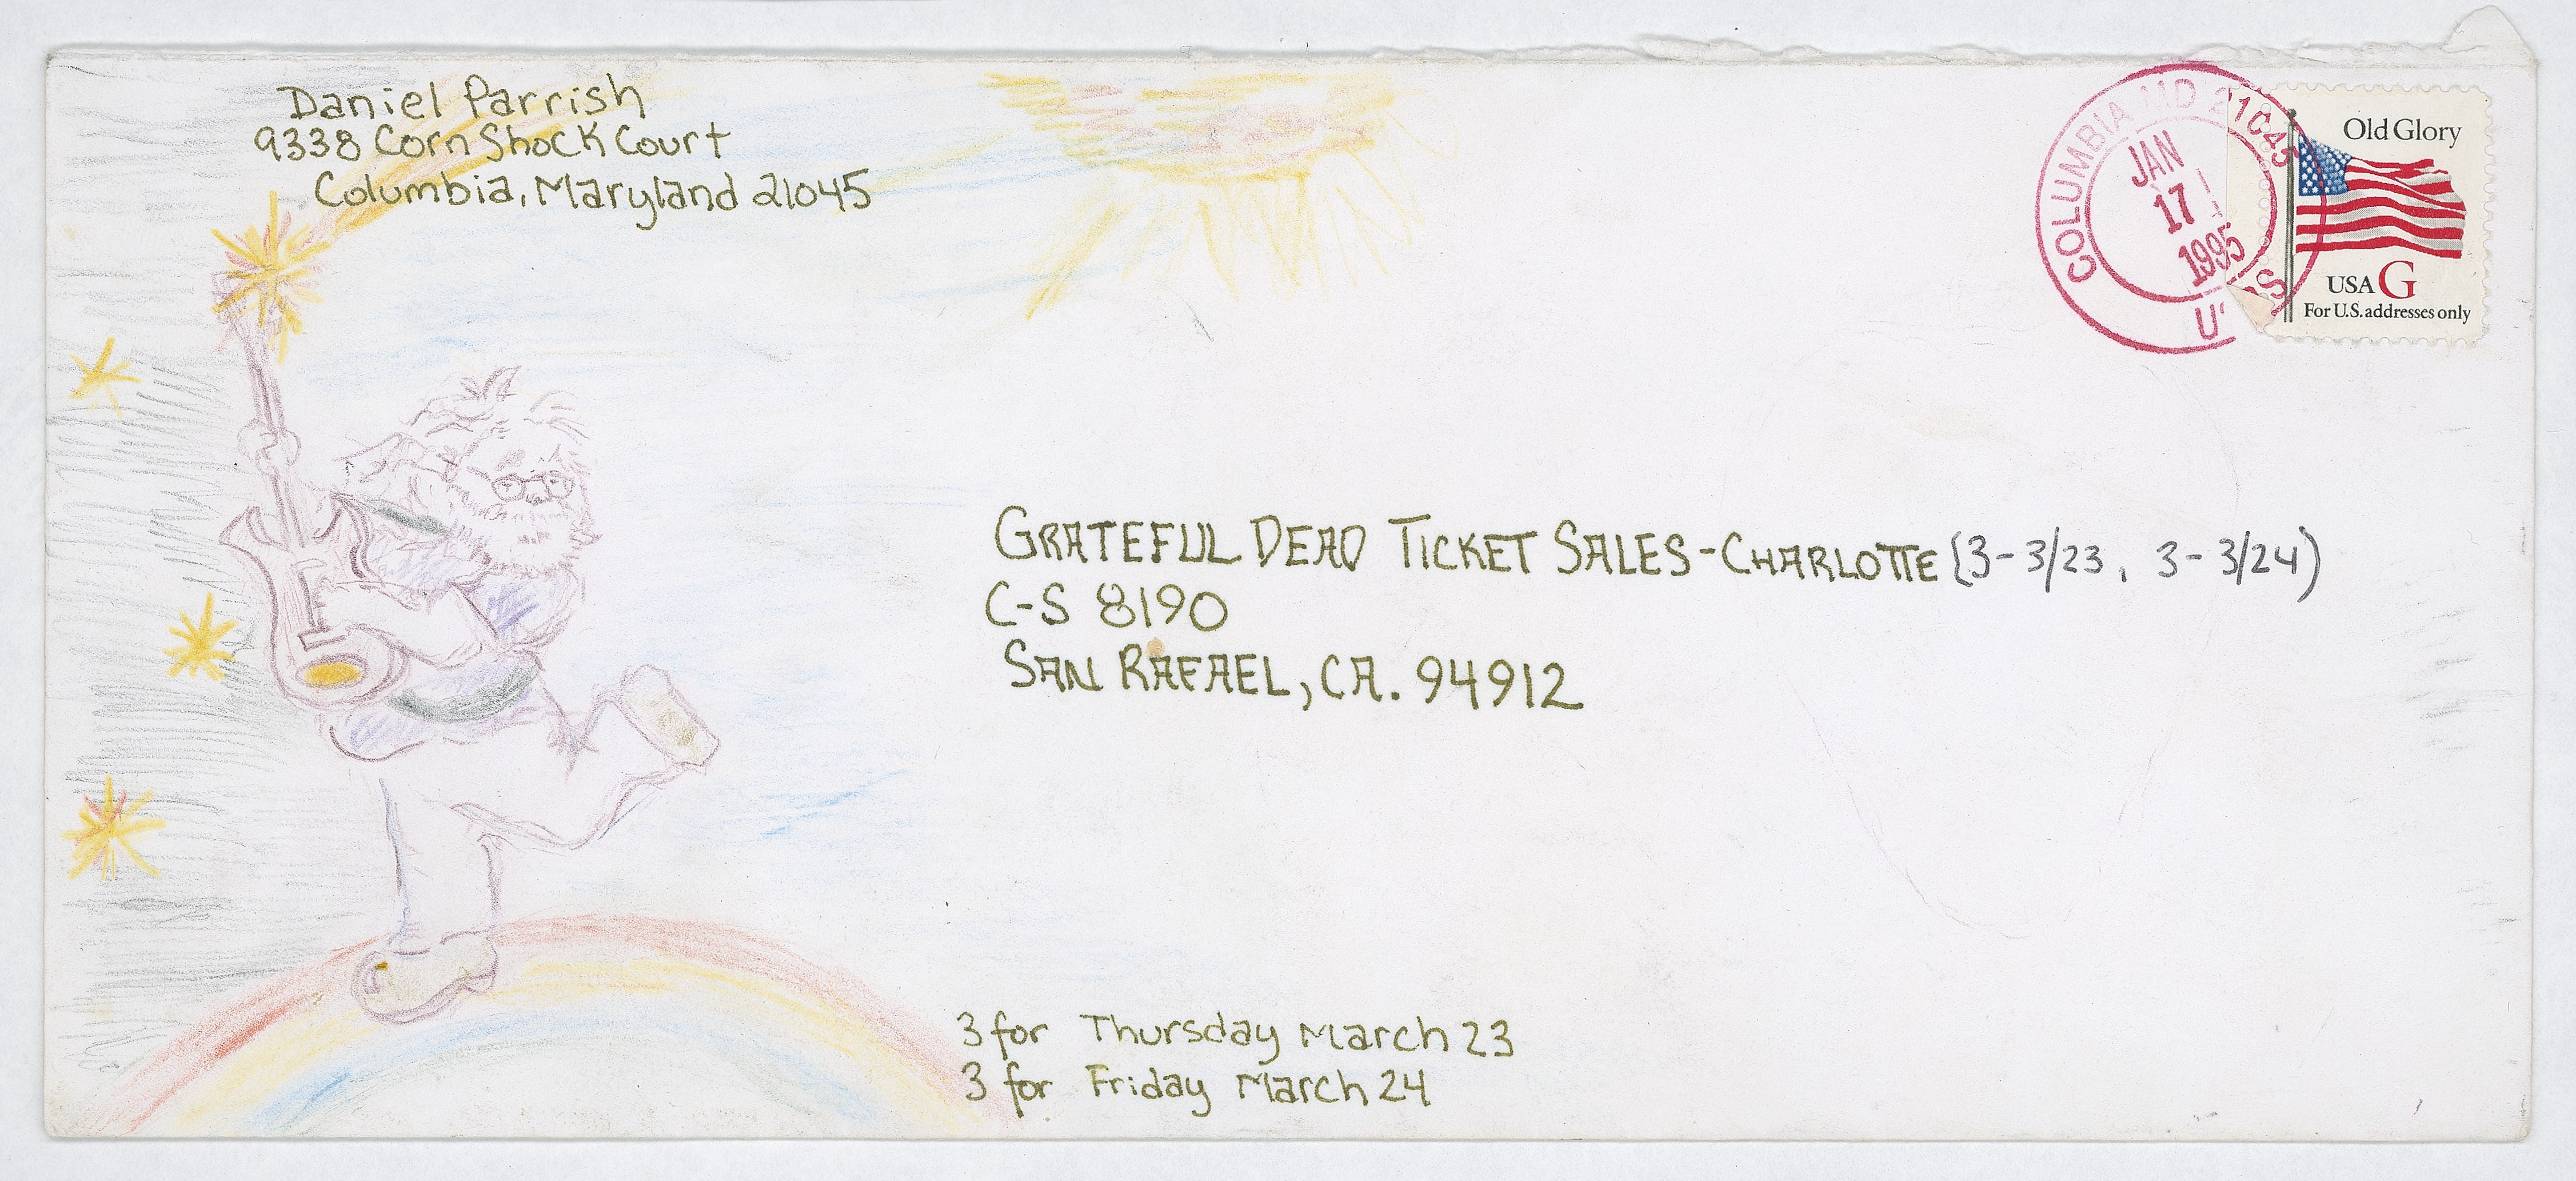 Daniel Parrish
9338 Corn Shock Court
Columbia, Maryland 21045
COLUMBIA MD 21045
JAN
17
1995
Old Glory
USA G
For U.S. addresses only
GRATEFUL DEAD TICKET SALES-CHARLOTTE (3-3/23, 3-3/24)
C-S 8190
SAN RAFAEL, CA. 94912
3 for Thursday March 23
3 for Friday March 24